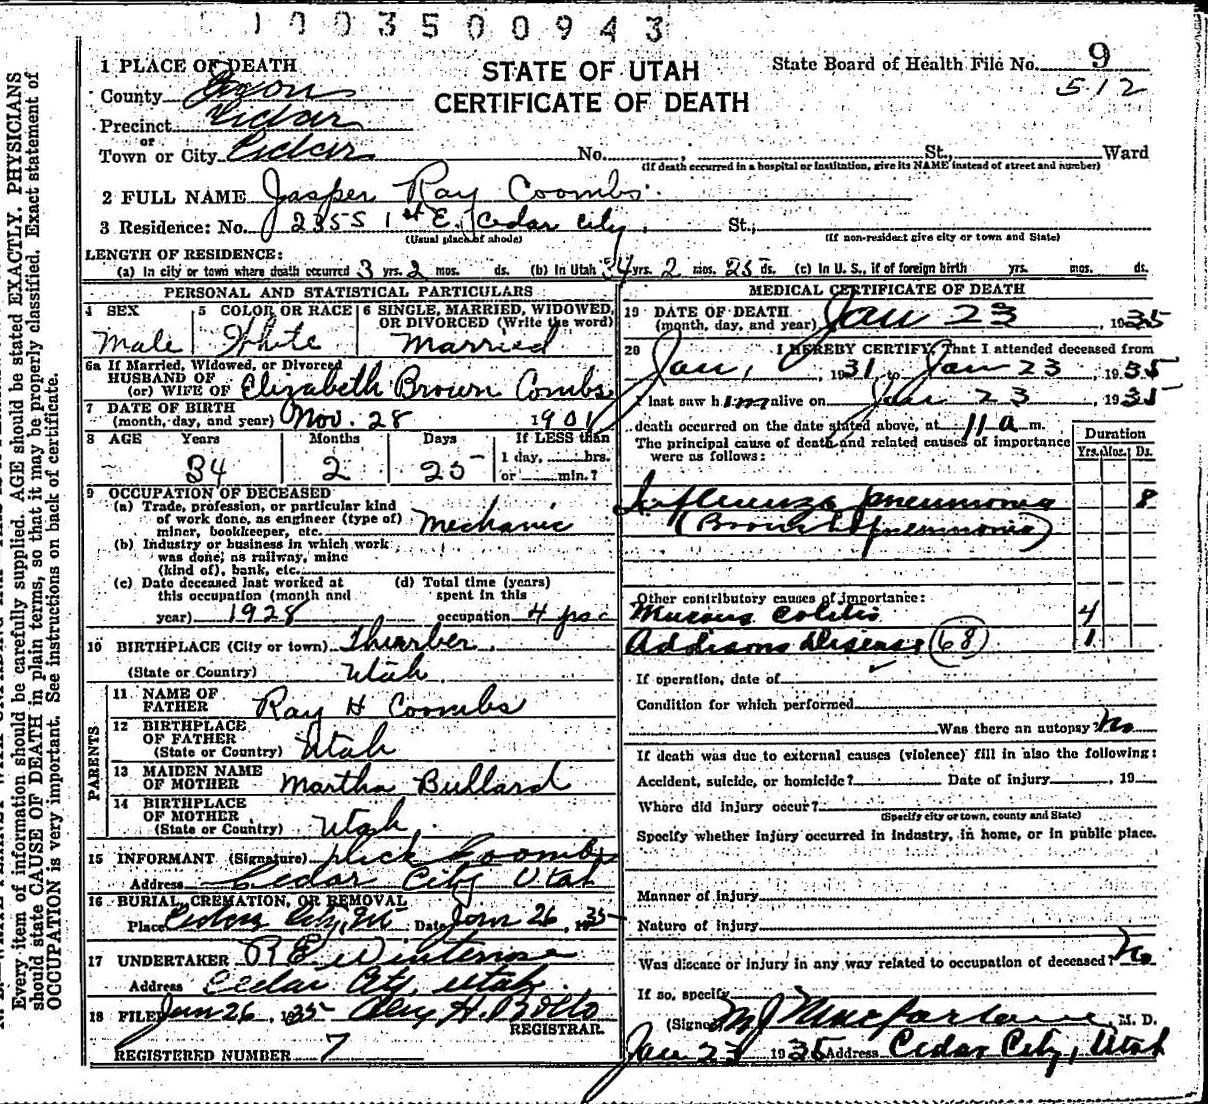 1003500943
1 PLACE OF DEATH
STATE OF UTAH
CERTIFICATE OF DEATH
State Board of Health File No. 9
512
County Iron
Precinct Cedar
or
Town or City Cedar No. , St., Ward
(If death occurred in a hospital or institution, give its NAME instead of street and number)
2 FULL NAME Jasper Ray Coombs
3 Residence: No. 235 S 1st E. Cedar City. St.,
(Usual place of abode) (If non-resident give city or town and State)
LENGTH OF RESIDENCE:
(a) In city or town where death occurred 3 yrs. 2 mos. ds. (b) In Utah 34 yrs. 2 mos. 25 ds. (c) In U. S., if of foreign birth yrs. mos. ds.
PERSONAL AND STATISTICAL PARTICULARS
4 SEX
Male
5 COLOR OR RACE
White
6 SINGLE, MARRIED, WIDOWED,
OR DIVORCED (Write the word)
Married
6a If Married, Widowed, or Divorced
HUSBAND OF
(or) WIFE OF Elizabeth Brown Combs
7 DATE OF BIRTH
(month, day, and year) Nov. 28 1901
8 AGE Years Months Days If LESS than
1 day, hrs.
34 2 25 or min.?
9 OCCUPATION OF DECEASED
(a) Trade, profession, or particular kind
of work done, as engineer (type of)
miner, bookkeeper, etc. Mechanic
(b) Industry or business in which work
was done, as railway, mine
(kind of), bank, etc.
(c) Date deceased last worked at
this occupation (month and
year) 1928
(d) Total time (years)
spent in this
occupation 4 yrs
10 BIRTHPLACE (City or town) Thurber.
(State or Country) Utah
PARENTS
11 NAME OF
FATHER Ray H Coombs
12 BIRTHPLACE
OF FATHER
(State or Country) Utah
13 MAIDEN NAME
OF MOTHER Martha Bullard
14 BIRTHPLACE
OF MOTHER
(State or Country) Utah.
15 INFORMANT (Signature) Coombs
Address Cedar City Utah
16 BURIAL, CREMATION, OR REMOVAL
Place Cedar City, Ut Date Jan 26, 1935
17 UNDERTAKER R E Winterose
Address Cedar City Utah.
18 FILED Jan 26, 1935 H.
REGISTRAR.
REGISTERED NUMBER 7
MEDICAL CERTIFICATE OF DEATH
19 DATE OF DEATH
(month, day, and year) Jan 23 1935
20 I HEREBY CERTIFY, That I attended deceased from
Jan, 1931 to Jan 23 1935
I last saw him alive on Jan 23 1935
death occurred on the date stated above, at 11 a m.
The principal cause of death and related causes of importance
were as follows:
Duration
Yrs. Mos. Ds.
Influenza pneumonia 8
(Bronchopneumonia)
Other contributory causes of importance:
Mucous Colitis 4
Addisons Disease (68) 1
If operation, date of
Condition for which performed
Was there an autopsy No
If death was due to external causes (violence) fill in also the following:
Accident, suicide, or homicide? Date of injury , 19
Where did injury occur?
(Specify city or town, county and State)
Specify whether injury occurred in industry, in home, or in public place.
Manner of injury
Nature of injury
Was disease or injury in any way related to occupation of deceased? No
If so, specify
(Signed) M J Macfarlane M. D.
Jan 23 1935 Address Cedar City, Utah
Every item of information should be carefully supplied. AGE should be stated EXACTLY. PHYSICIANS
should state CAUSE OF DEATH in plain terms, so that it may be properly classified. Exact statement of
OCCUPATION is very important. See instructions on back of certificate.